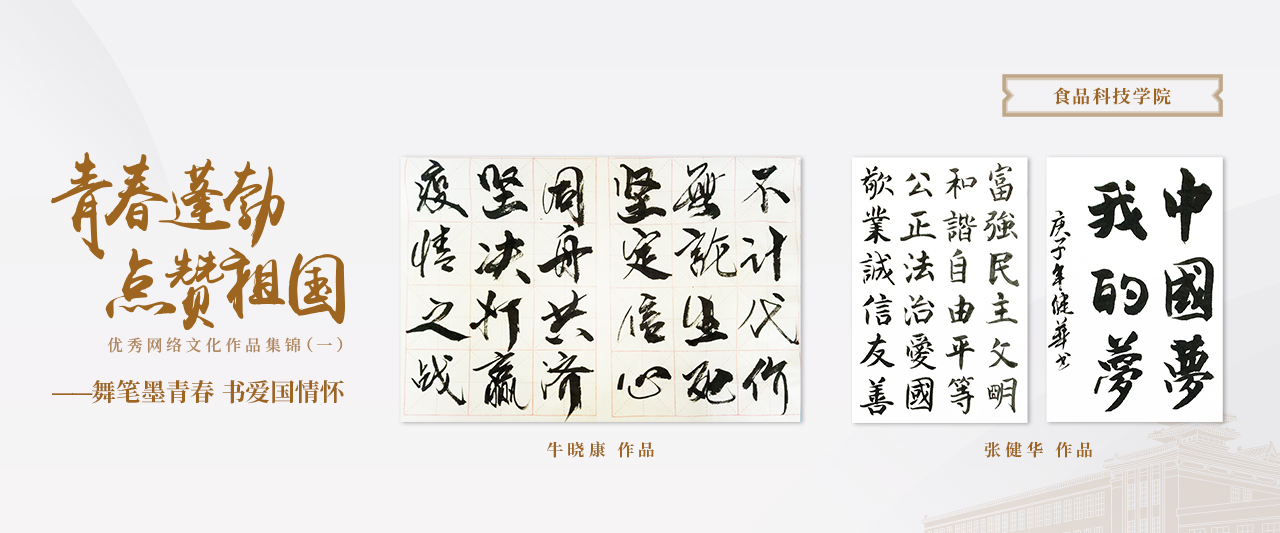 青春蓬勃
点赞祖国
优秀网络文化作品集锦(一)
——舞笔墨青春 书爱国情怀
不计代价
無論生死
坚定信心
同舟共济
坚决打赢
疫情之战
牛晓康 作品
食品科技学院
富強民主文明
和諧自由平等
公正法治愛國
敬業誠信友善
中國夢
我的夢
庚子年健華书
张健华 作品